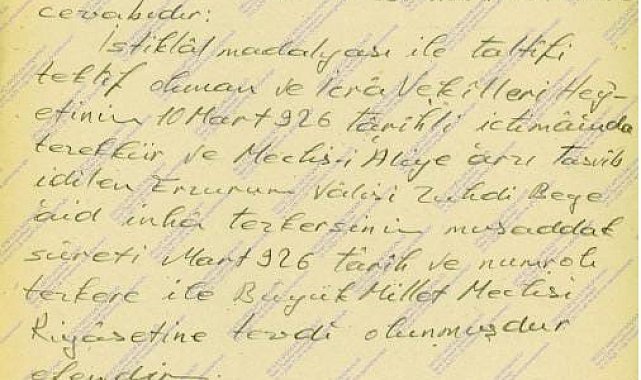 cevabıdır:
İstiklâl madalyası ile taltifi
teklif olunan ve İcrâ Vekilleri Hey-
etinin 10 Mart 926 târihli ictimâında
tezekkür ve Meclis-i Âliye arzı tasvîb
idilen Erzurum Vâlisi Zühdi Beye
âid inhâ tezkersinin musaddak
sûreti Mart 926 târih ve numrolı
tezkere ile Büyük Millet Meclisi
Riyâsetine tevdî olunmuşdur
efendim.